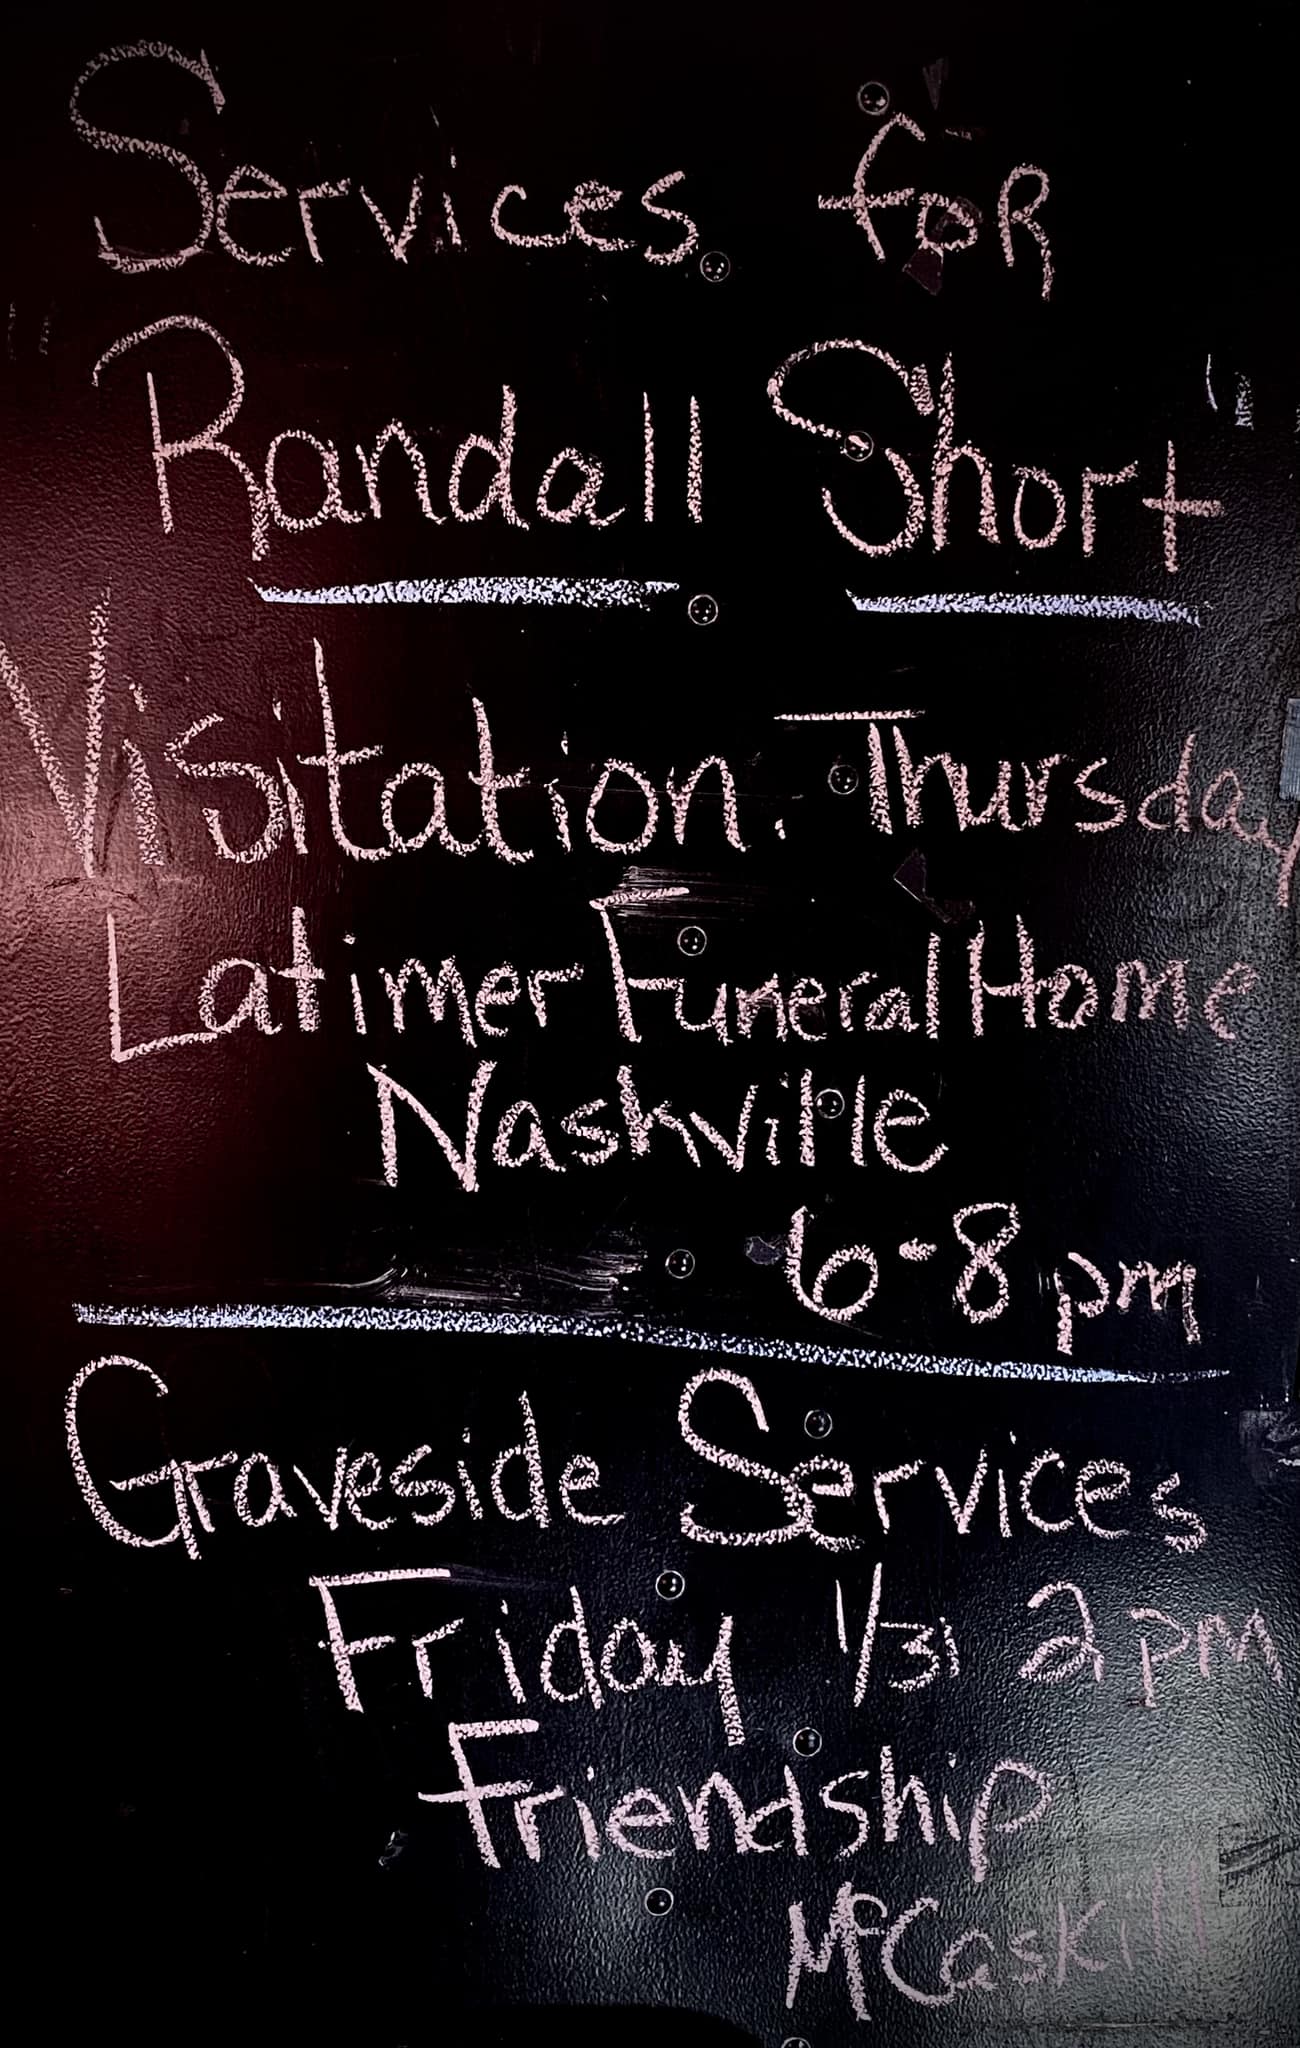 Services for
Randall Short
Visitation: Thursday
Latimer Funeral Home
Nashville
6-8 pm
Graveside Services
Friday 1/31 2 pm
Friendship
McCaskill